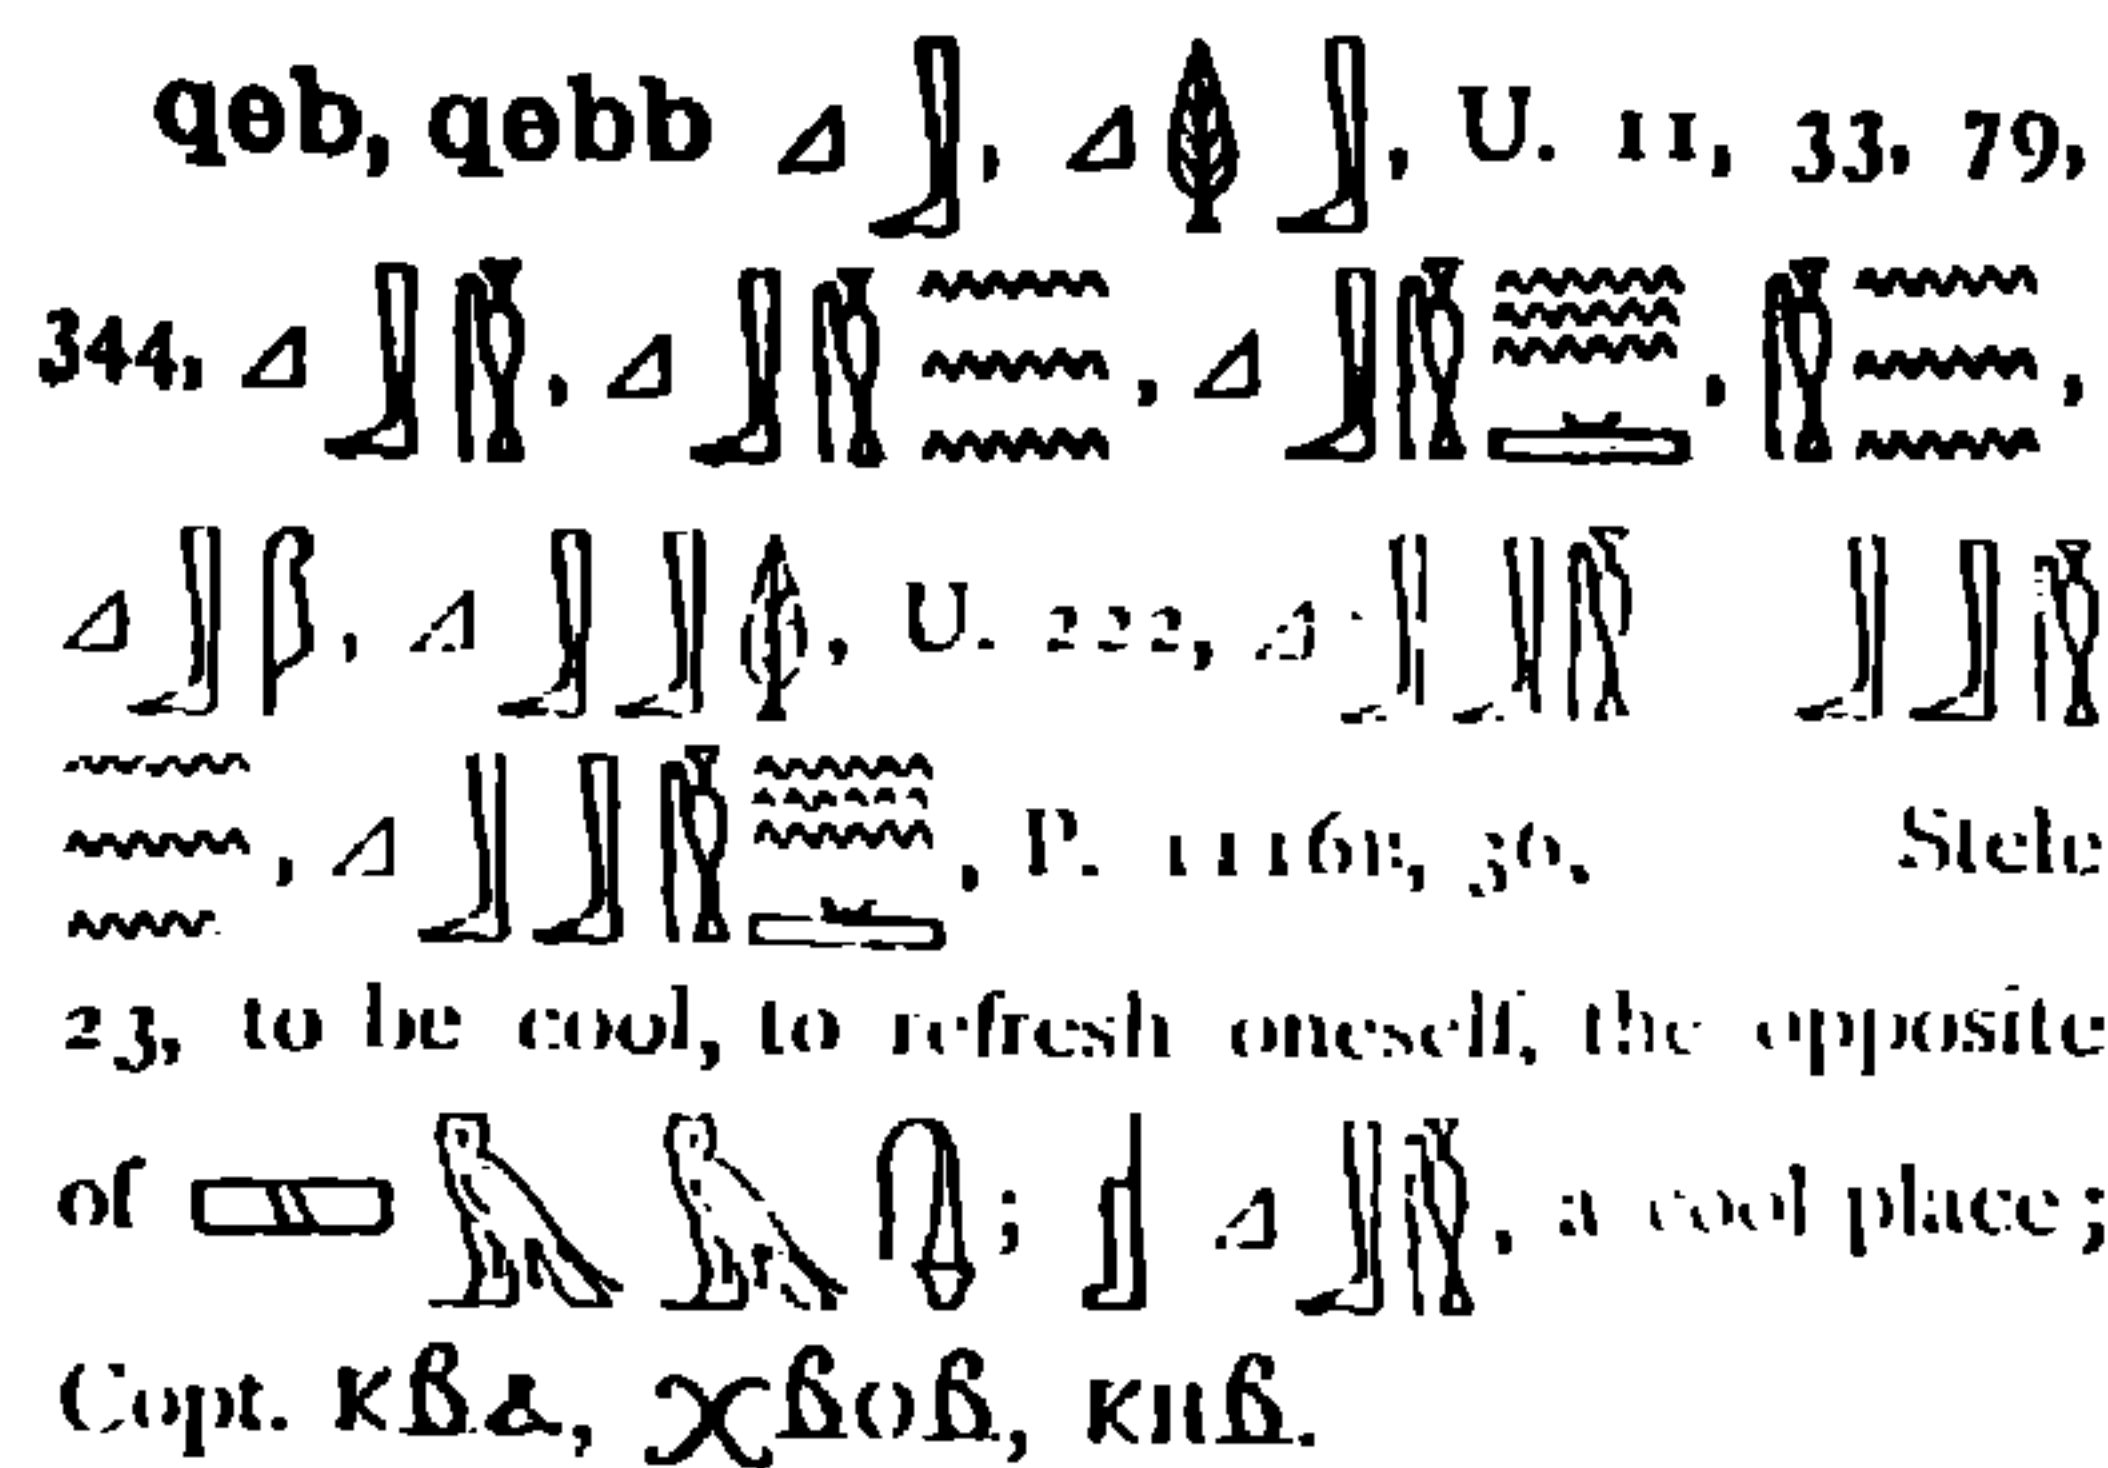 qeb, qebb 𓈎𓃀, 𓈎𓆭𓃀, U. 11, 33, 79,
344, 𓈎𓃀𓏁, 𓈎𓃀𓏁𓈗, 𓈎𓃀𓏁𓈗𓏛, 𓏁𓈗,
𓈎𓃀, 𓈎𓃀𓃀𓆭, U. 222, 𓈎𓃀𓃀𓏁 𓃀𓃀𓏁
𓈗, 𓈎𓃀𓃀𓏁𓈗𓏛, P. 1116B, 30. Stele
23, to be cool, to refresh oneself, the opposite
of 𓈙𓅓𓅓𓊮; 𓊨 𓈎𓃀𓏁, a cool place;
Copt. ⲕⲃⲁ, ⲭⲃⲟⲃ, ⲕⲏⲃ.